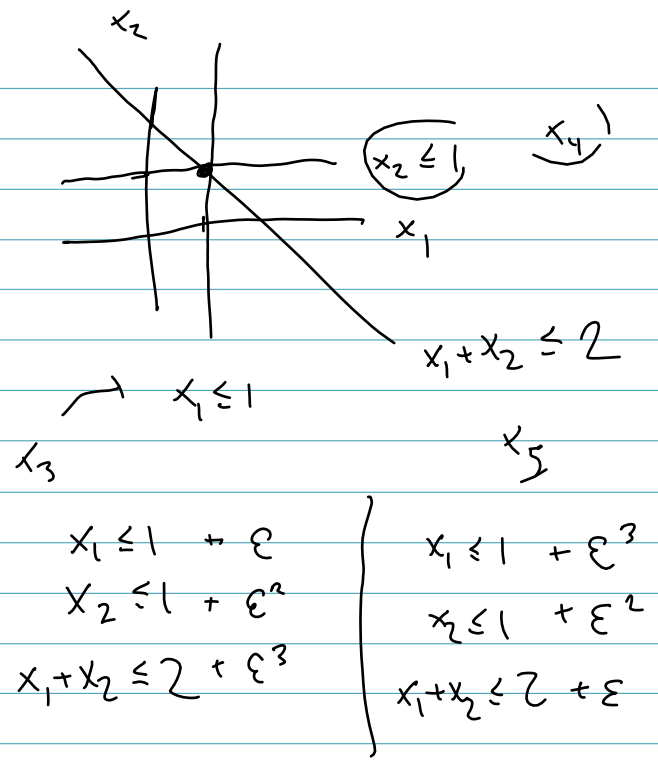 x₂
x₂ ≤ 1
x₄
x₁
x₁ + x₂ ≤ 2
x₁ ≤ 1
x₃
x₅
x₁ ≤ 1 + ε
x₂ ≤ 1 + ε²
x₁ + x₂ ≤ 2 + ε³
x₁ ≤ 1 + ε³
x₂ ≤ 1 + ε²
x₁ + x₂ ≤ 2 + ε